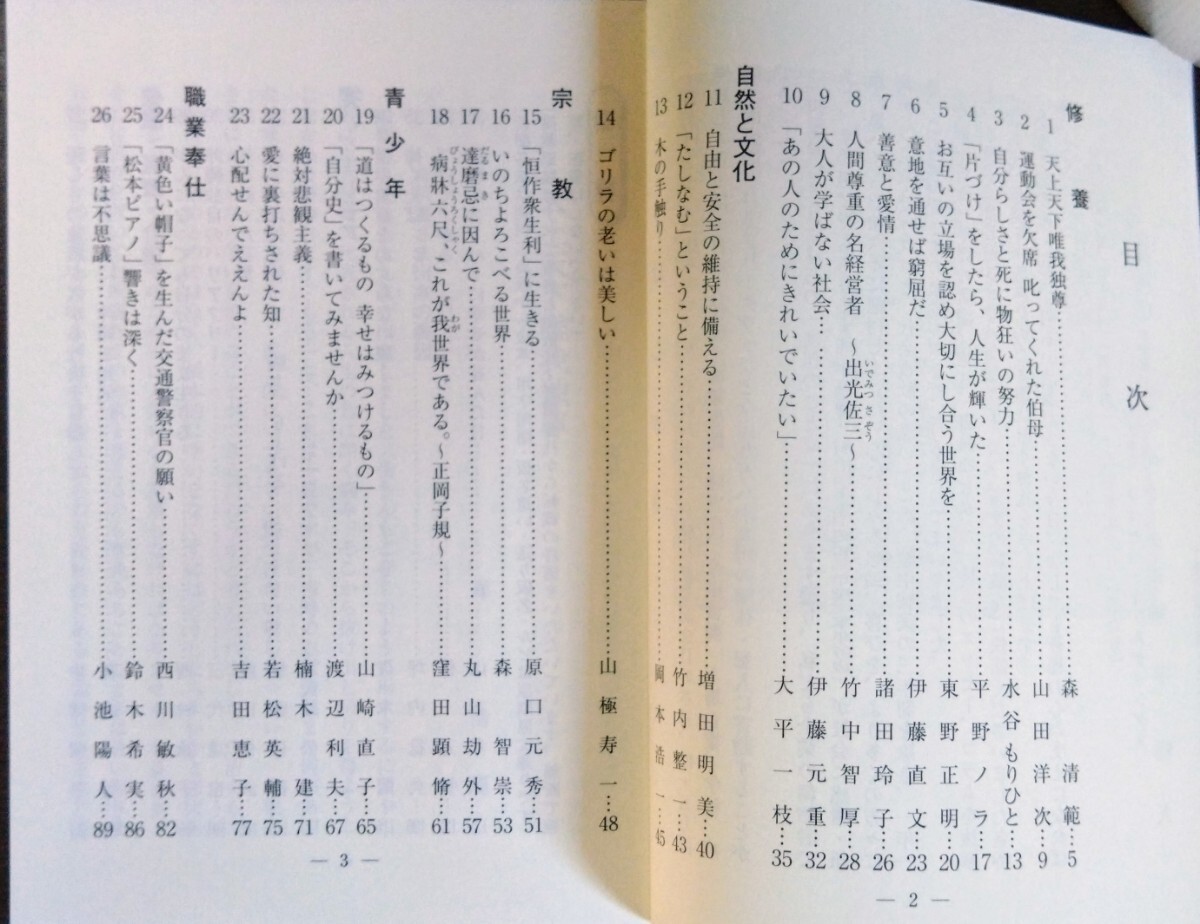 目次
修養
1 天上天下唯我独尊……森清範…5
2 運動会を欠席 叱ってくれた伯母……山田洋次…9
3 自分らしさと死に物狂いの努力……水谷もりひと…13
4 「片づけ」をしたら、人生が輝いた……平野ノラ…17
5 お互いの立場を認め大切にし合う世界を……東野正明…20
6 意地を通せば窮屈だ……伊藤直文…23
7 善意と愛情……諸田玲子…26
8 人間尊重の名経営者 〜出光佐三〜……竹中智厚…28
いでみつさぞう
9 大人が学ばない社会……伊藤元重…32
10 「あの人のためにきれいでいたい」……大平一枝…35
自然と文化
11 自由と安全の維持に備える……増田明美…40
12 「たしなむ」ということ……竹内整一…43
13 木の手触り……岡本浩一…45
— 2 —
14 ゴリラの老いは美しい……山極寿一…48
宗教
15 「恒作衆生利」に生きる……原口元秀…51
16 いのちよろこべる世界……森智崇…53
17 達磨忌に因んで……丸山劫外…57
だるまき
18 病牀六尺、これが我世界である。〜正岡子規〜……窪田顕脩…61
びょうしょうろくしゃく わが
青少年
19 「道はつくるもの 幸せはみつけるもの」……山崎直子…65
20 「自分史」を書いてみませんか……渡辺利夫…67
21 絶対悲観主義……楠木建…71
22 愛に裏打ちされた知……若松英輔…75
23 心配せんでええんよ……吉田恵子…77
職業奉仕
24 「黄色い帽子」を生んだ交通警察官の願い……西川敏秋…82
25 「松本ピアノ」響きは深く……鈴木希実…86
26 言葉は不思議……小池陽人…89
— 3 —